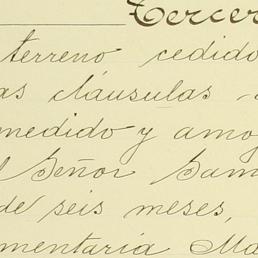 Tercer
terreno cedido
as cláusulas
medido y amo
l Señor Sam
de seis meses,
mentaria Ma